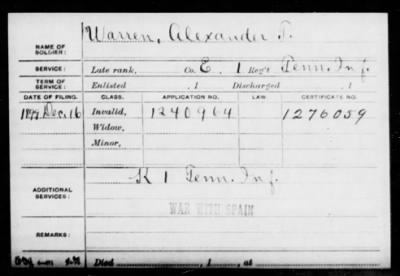 Warren, Alexander T.
NAME OF SOLDIER:
SERVICE: Late rank, Co. E, 1 Reg't Tenn. Inf.
TERM OF SERVICE: Enlisted , 1 Discharged , 1
DATE OF FILING. CLASS. APPLICATION NO. LAW. CERTIFICATE NO.
1899 Dec. 16 Invalid, 1240964 1276059
Widow,
Minor,
ADDITIONAL SERVICES: K 1 Tenn. Inf.
WAR WITH SPAIN
REMARKS:
Died , 1 , at